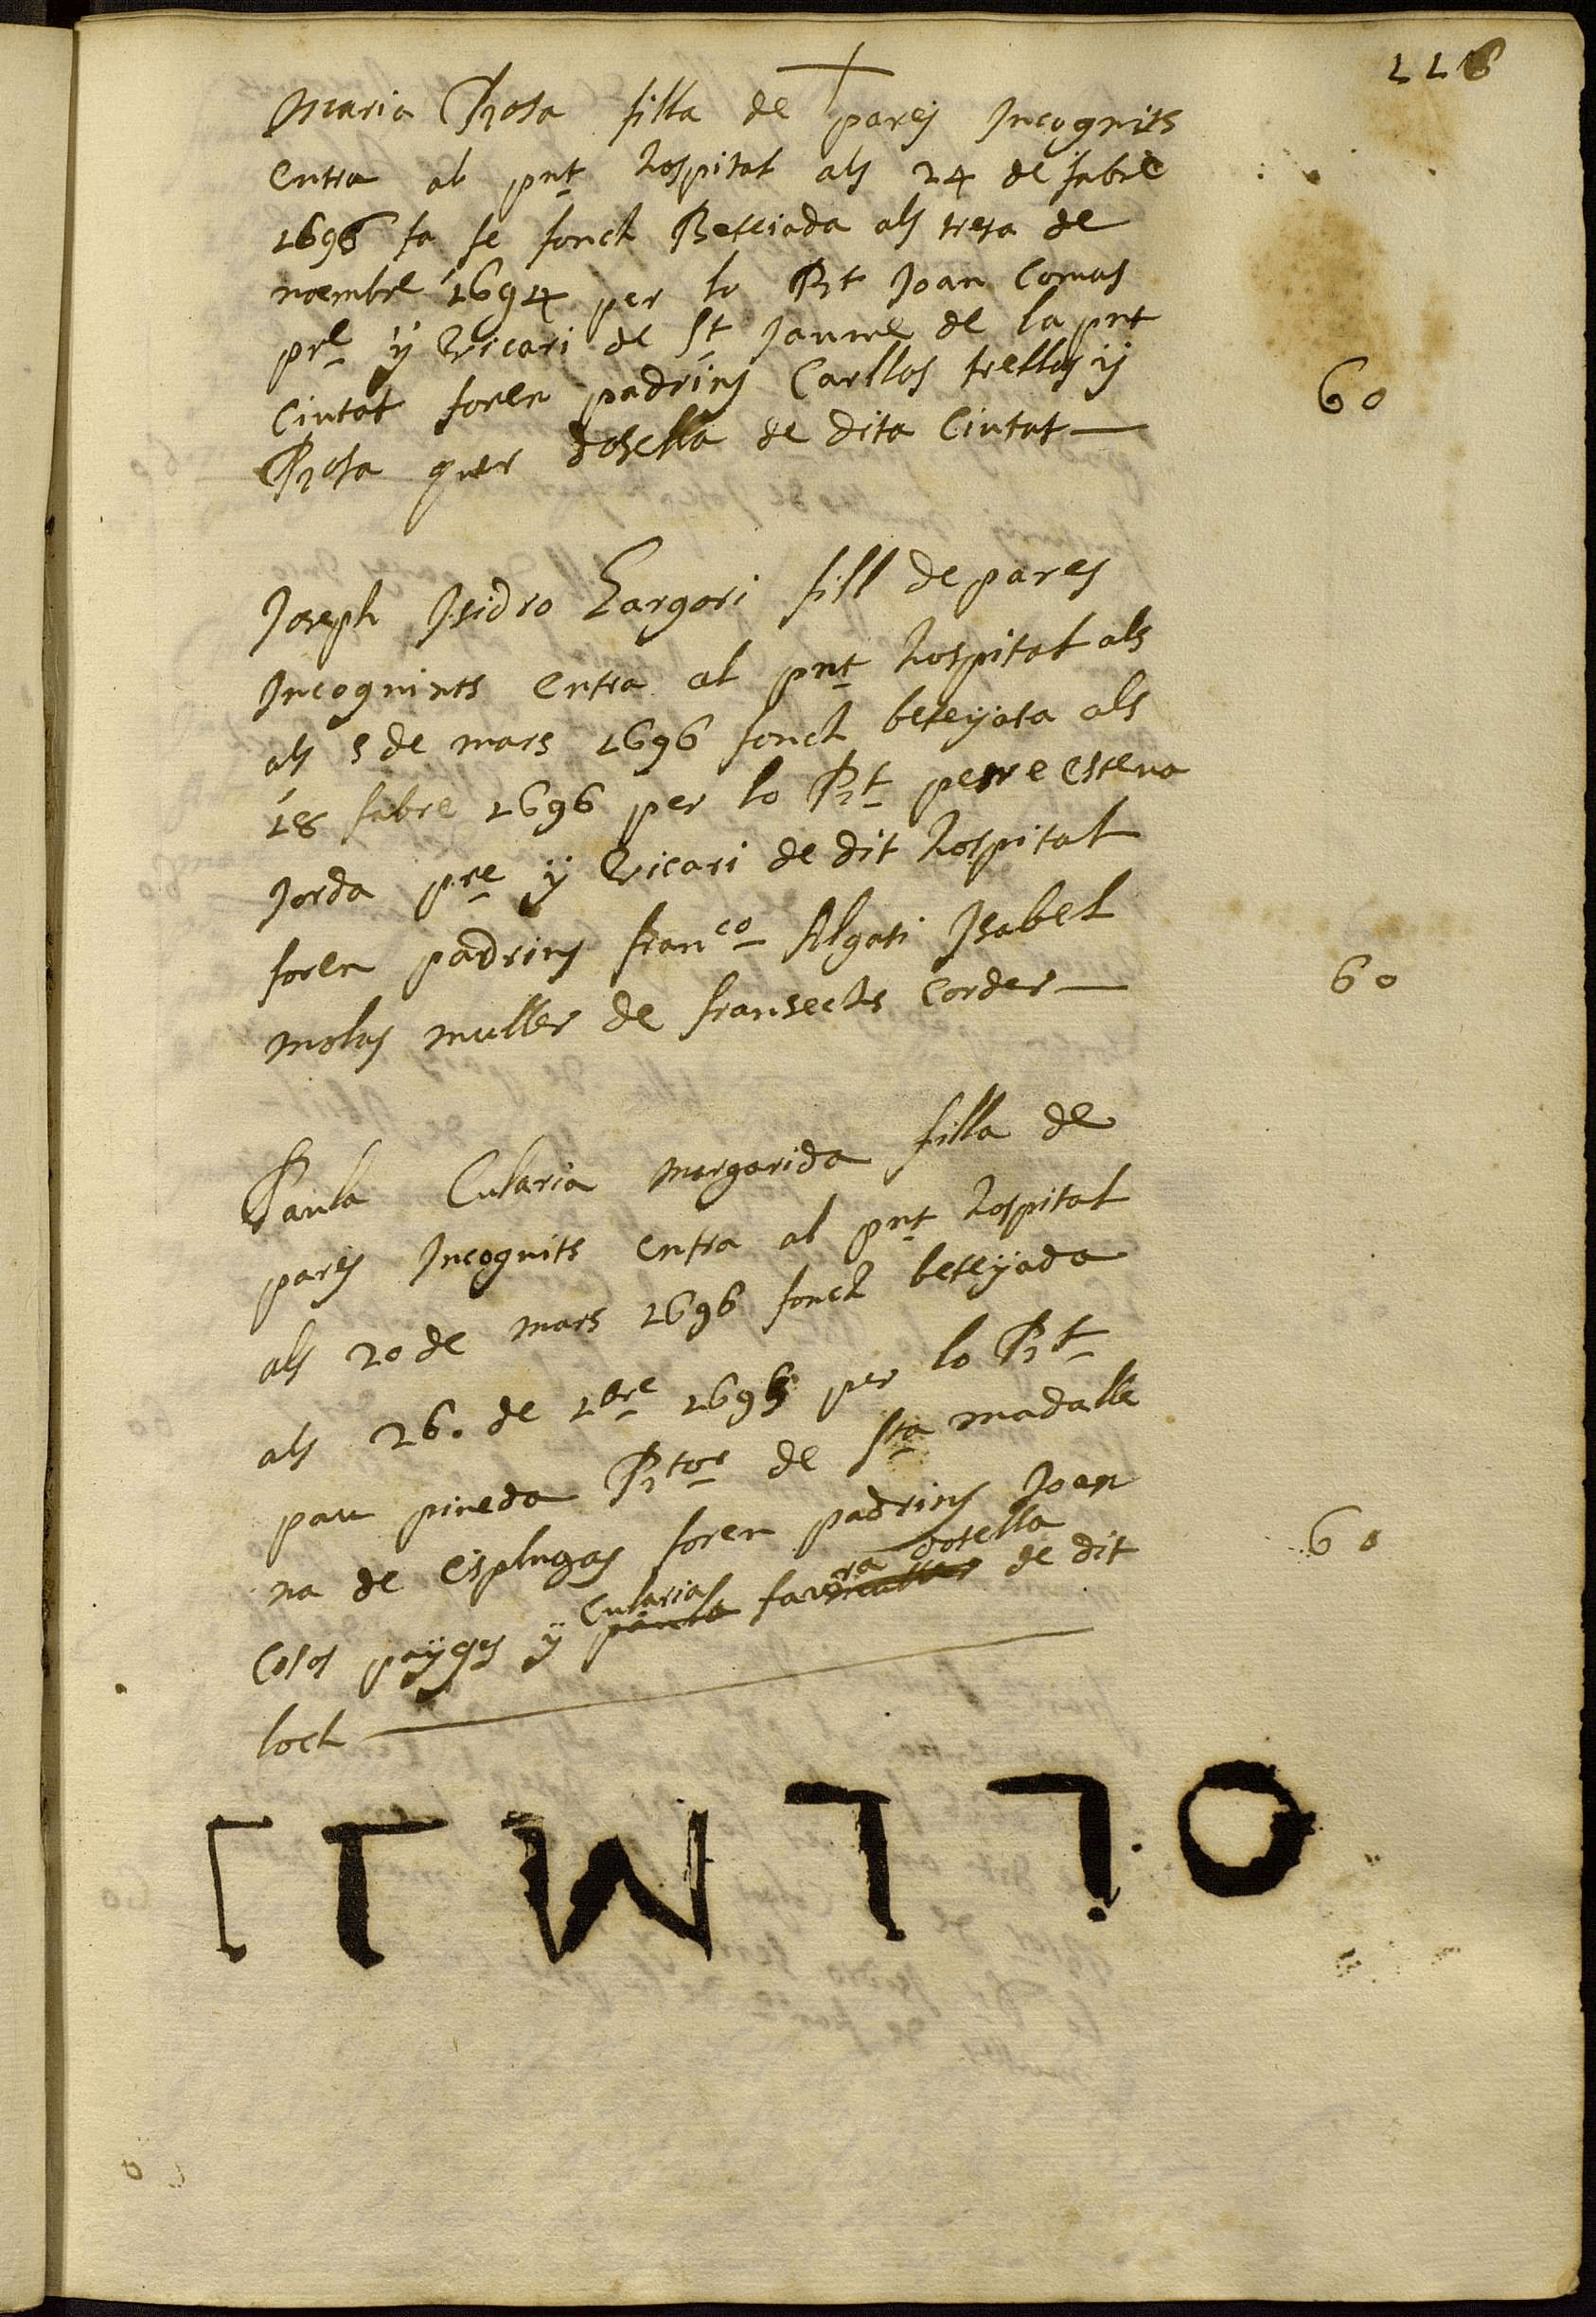 116
Maria Rosa filla de pares Incognits
entra al pnt hospital als 24 de fabre
1696 fa fe fonch Bateiada als tresa de
noembre 1694 per lo Rt Joan Comas
pre y Vicari de St Jaume de la pnt
Ciutat foren padrins Carllos trellos y 60
Rosa quer dosella de dita Ciutat
Joseph Isidro Gargori fill de pares
Incognints entra al pnt hospital als
als 5 de mars 1696 fonch bateyata als
18 fabre 1696 per lo Rt perre esteva
Jorda pre y Vicari de dit hospital
foren padrins franco Algati Isabel
molas muller de fransechs Corder 60
Paula Eularia Margarida filla de
pares Incognits entra al pnt hospital
als 20 de mars 1696 fonch bateyada
als 26. de xbre 1695 per lo Rt
pau pineda Rtor de sta madalle
na de esplugas foren padrins Joan
Eularia ra dosella 60
Casas payges y paula de dit
loch